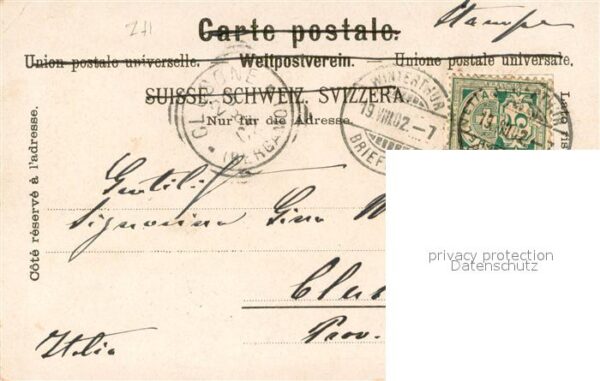 Carte postale.
Stampe
Union postale universelle. — Weltpostverein. — Unione postale universale.
SUISSE. SCHWEIZ. SVIZZERA.
Nur für die Adresse.
Côté réservé à l'adresse.
CLUSONE
(BERGAMO)
WINTERTHUR
19 VIII 02 - 7
BRIEF
Gentilis
Signorina Gina
Clus
Prov.
Italia
privacy protection
Datenschutz